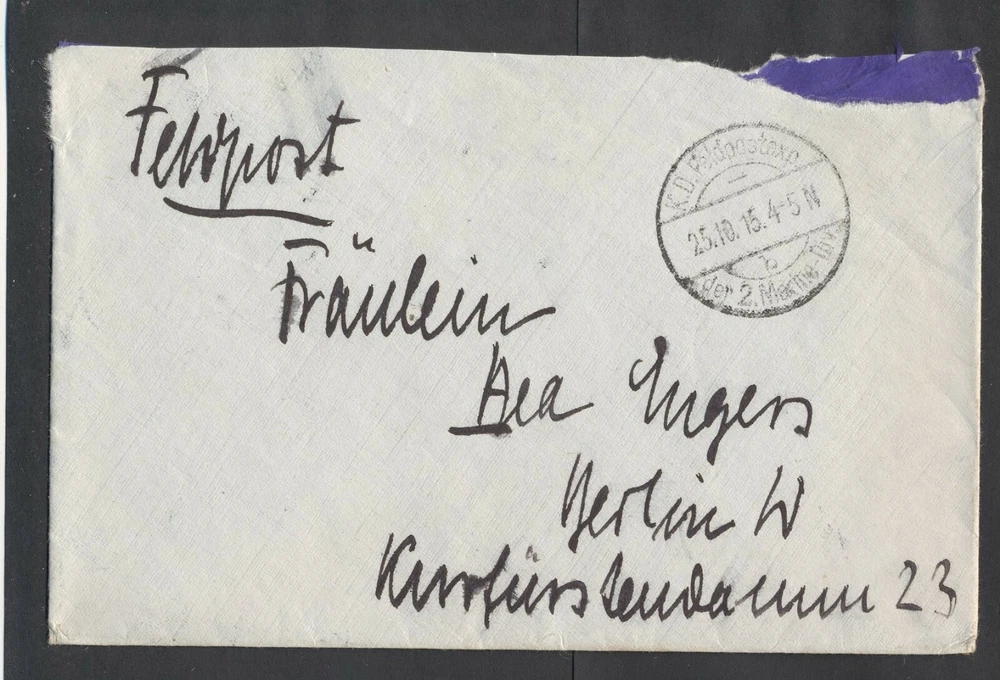 Feldpost
K.D. Feldpostexp.
25.10.15.4-5 N
b
der 2. Marine-Div.
Fräulein
Bea Engers
Berlin W
Kurfürstendamm 23